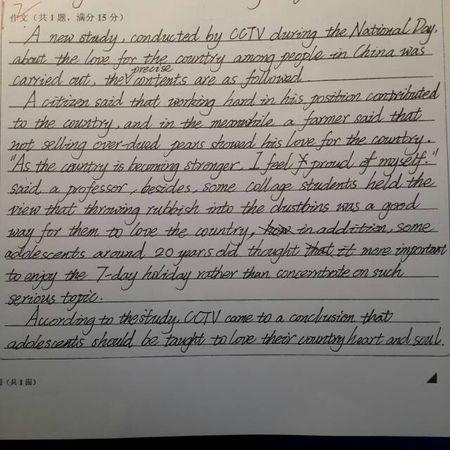 7
作文（共1题，满分15分）
A new study, conducted by CCTV during the National Day,
about the love for the country among people in China was
carried out, the precise contents are as followed.
A citizen said that working hard in his position contributed
to the country, and in the meanwhile a farmer said that
not selling over-dued pears showed his love for the country.
"As the country is becoming stronger, I feel proud of myself."
said a professor, besides, some collage students held the
view that throwing rubbish into the dustbins was a good
way for them to love the country, in addition, some
adolescents around 20 years old thought that it more important
to enjoy the 7-day holiday rather than concentrate on such
serious topic.
According to the study, CCTV came to a conclusion that
adolescents should be taught to love their country heart and soul.
（共1面）